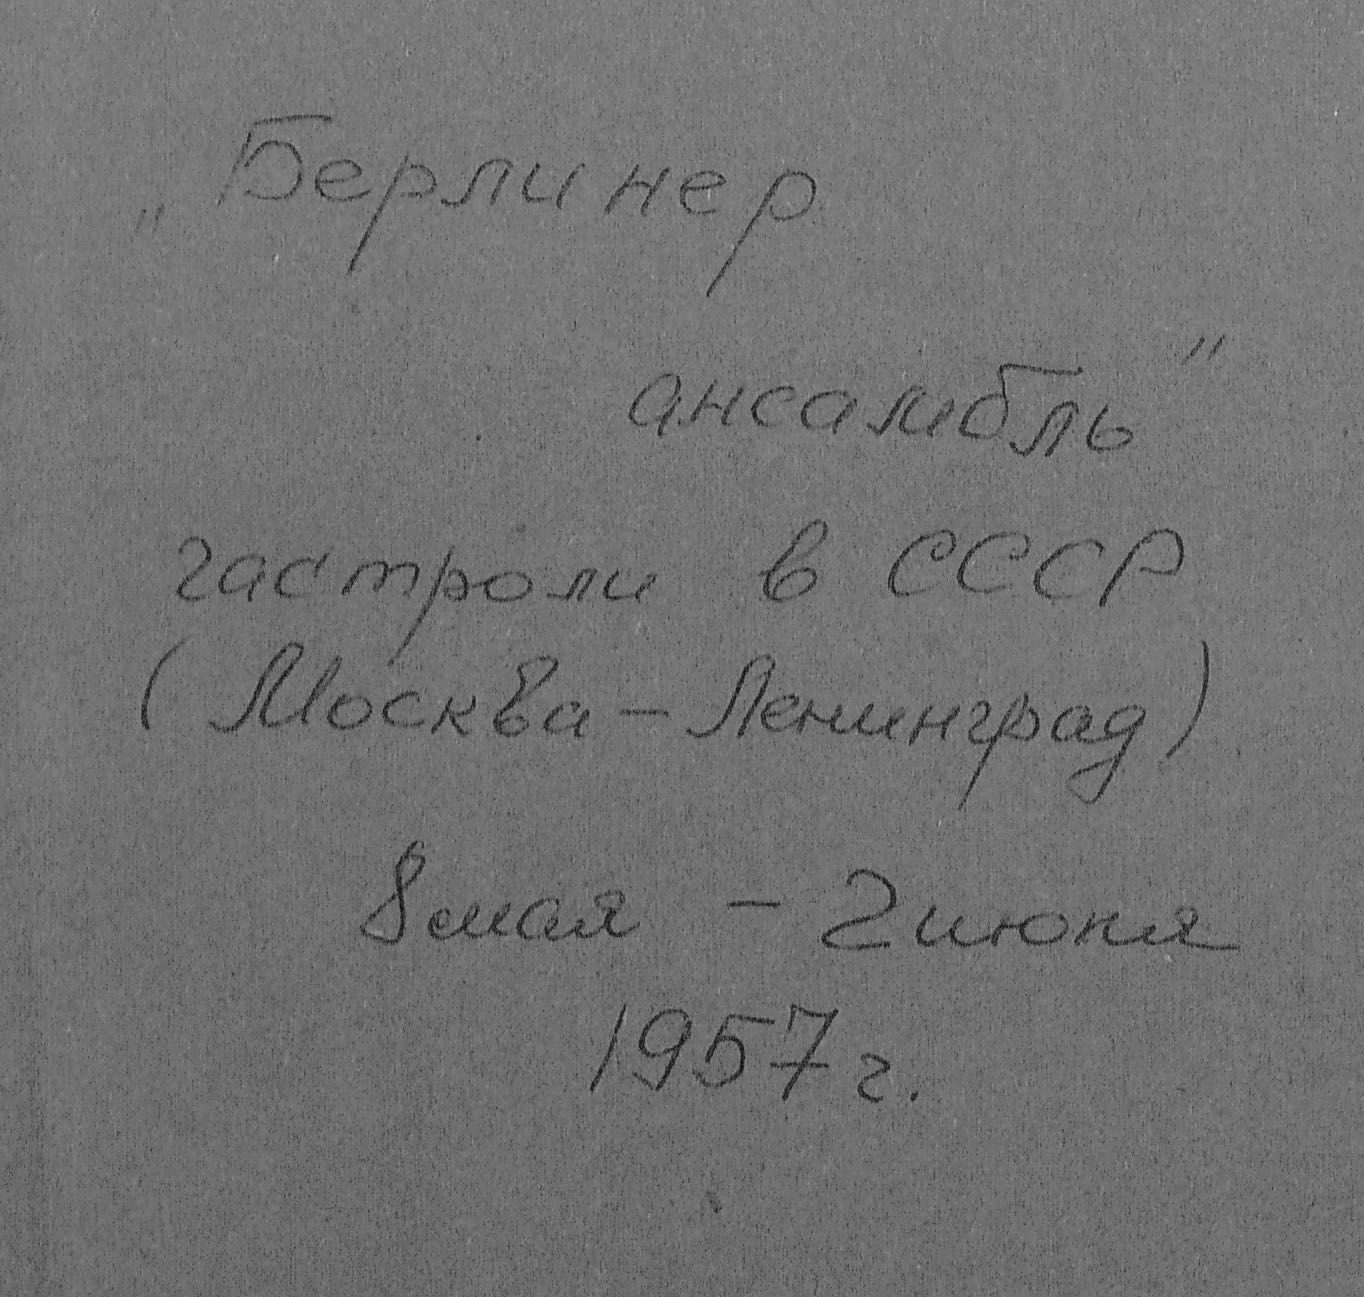 „Берлинер
ансамбль”
гастроли в СССР
(Москва – Ленинград)
8 мая – 2 июня
1957 г.